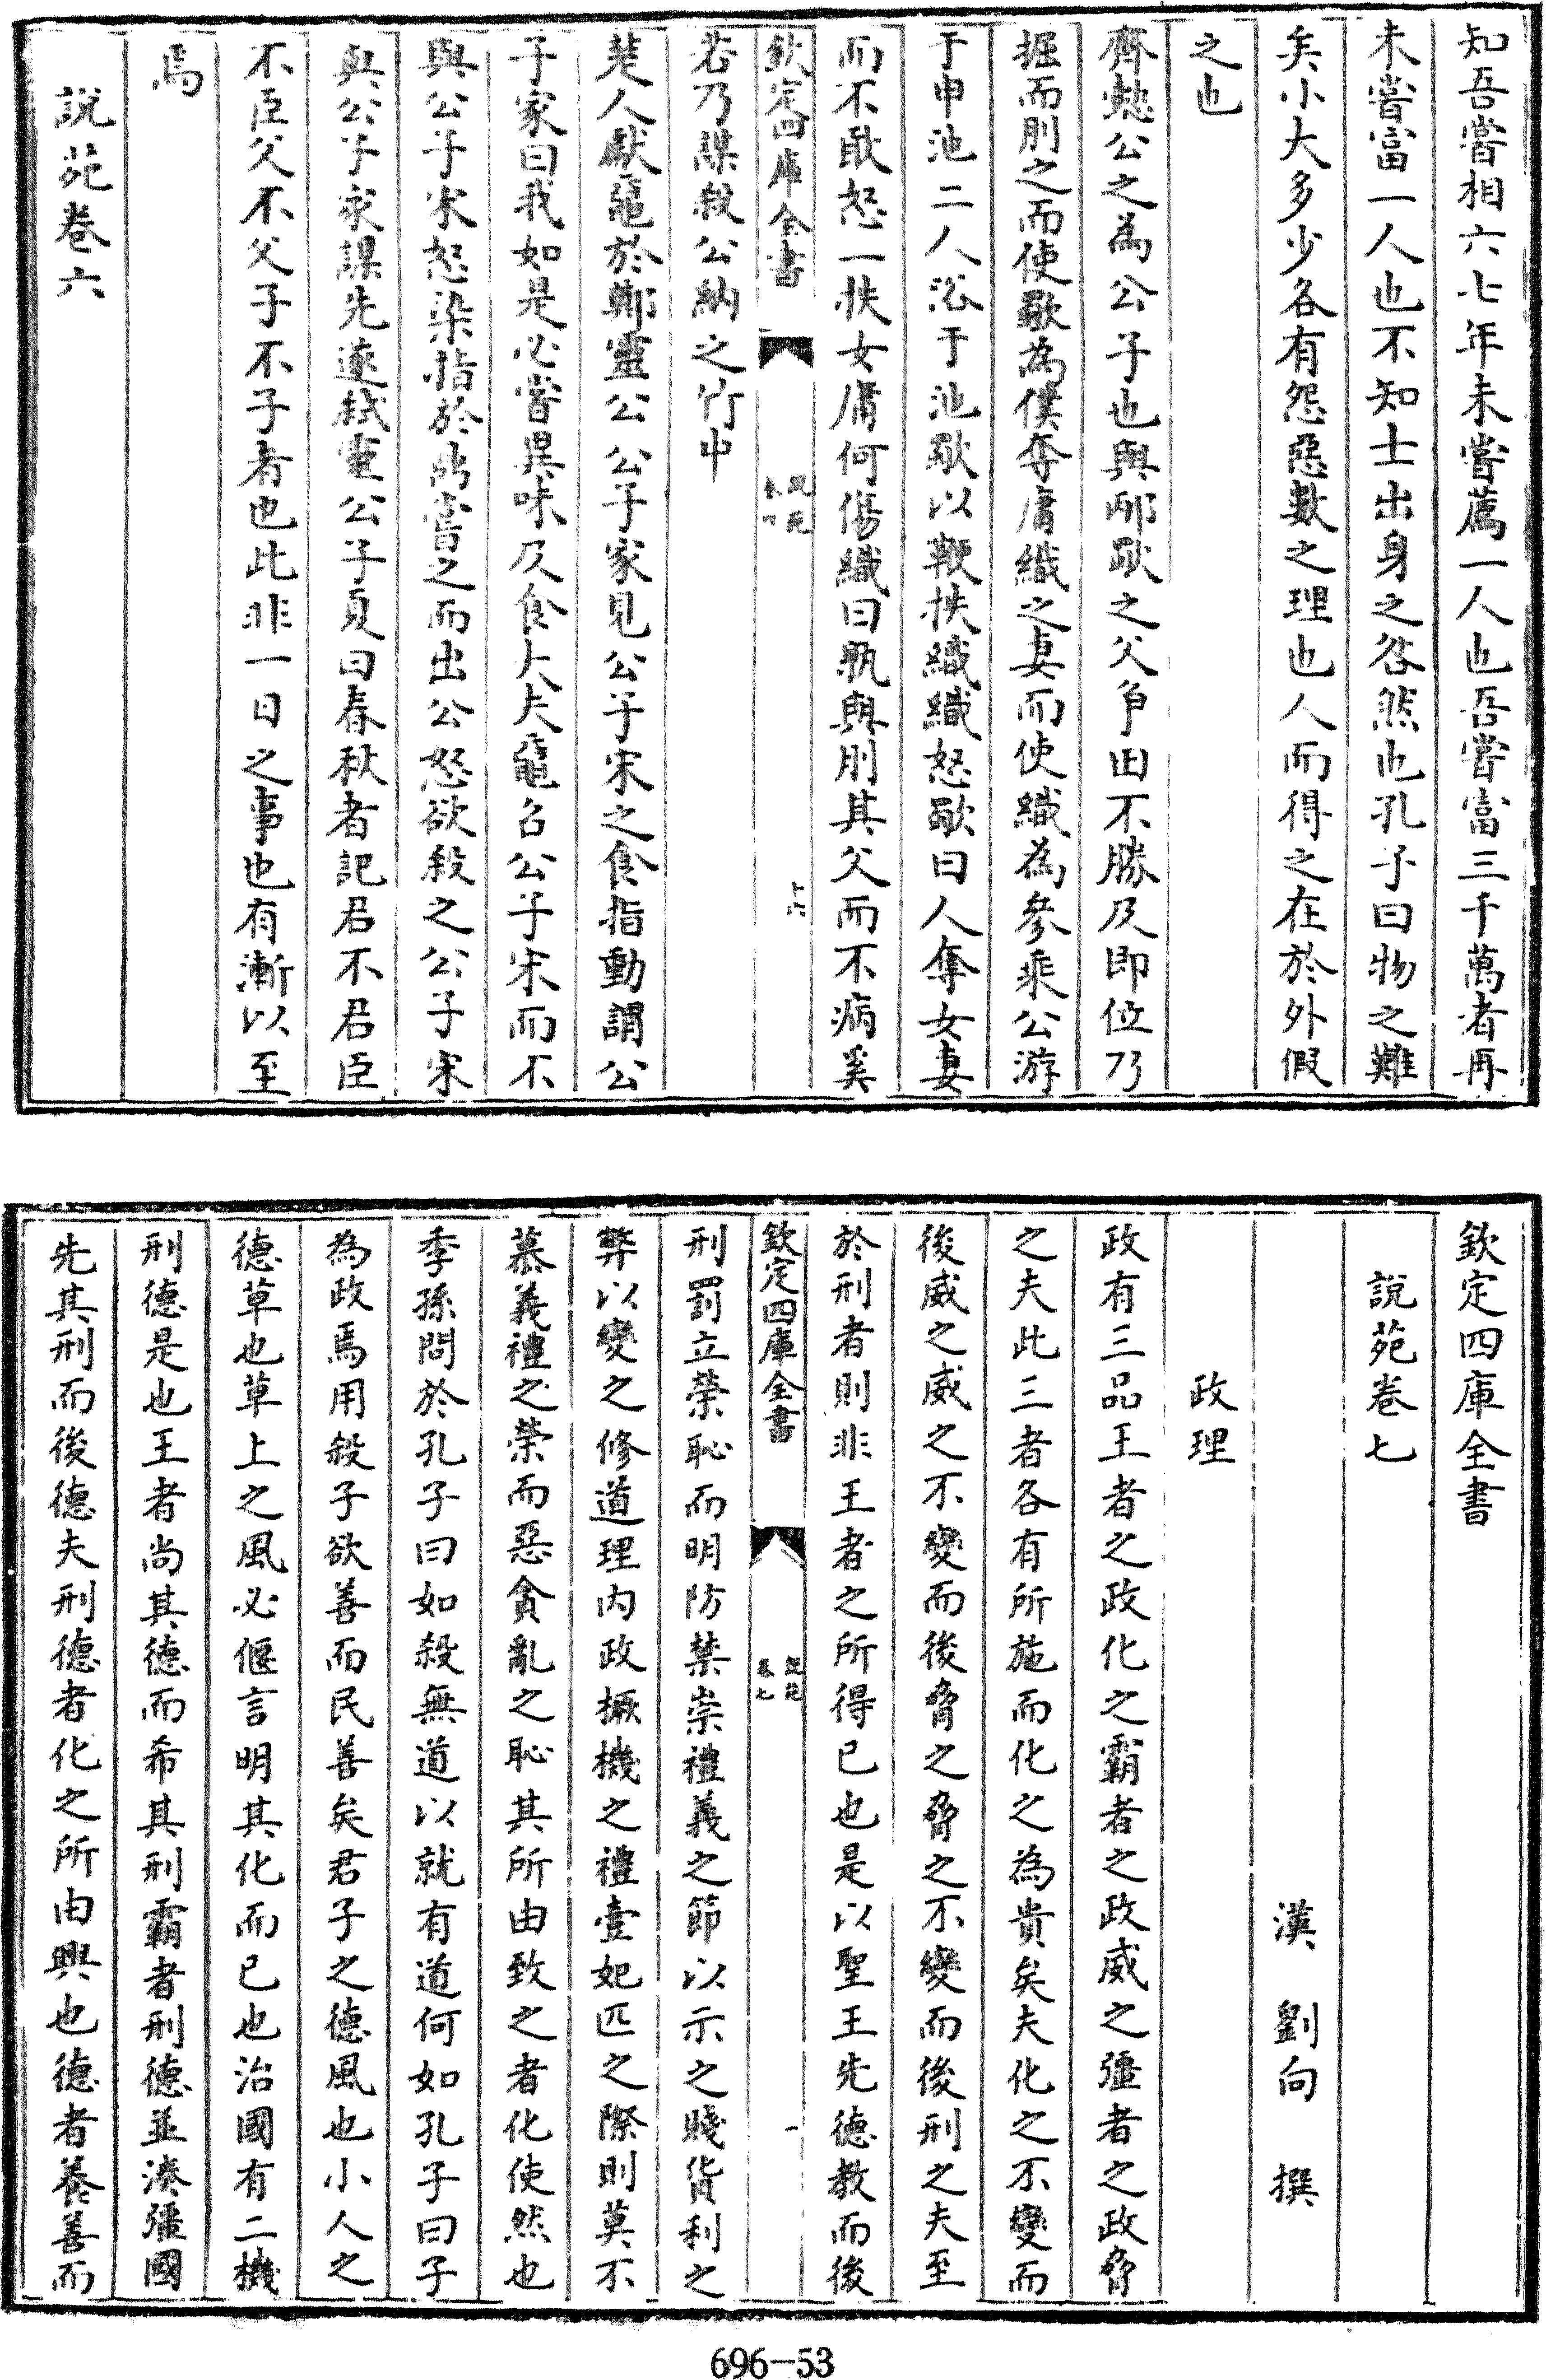 知吾嘗相六七年未嘗薦一人也吾嘗富三千萬者再
未嘗富一人也不知士出身之咎然也孔子曰物之難
矣小大多少各有怨惡數之理也人而得之在於外假
之也
齊懿公之為公子也與邴歜之父争田不勝及即位乃
掘而刖之而使歜為僕奪庸織之妻而使織為參乘公游
于申池二人浴于池歜以鞭抶織織怒歜曰人奪女妻
而不敢怒一抶女庸何傷織曰孰與刖其父而不病奚
欽定四庫全書
說苑
卷六
十六
若乃謀殺公納之竹中
楚人獻黿於鄭靈公公子家見公子宋之食指動謂公
子家曰我如是必嘗異味及食大夫黿召公子宋而不
與公子宋怒染指於鼎嘗之而出公怒欲殺之公子宋
與公子家謀先遂弑靈公子夏曰春秋者記君不君臣
不臣父不父子不子者也此非一日之事也有漸以至
焉
說苑卷六
欽定四庫全書
說苑卷七
漢 劉向 撰
政理
政有三品王者之政化之霸者之政威之彊者之政脅
之夫此三者各有所施而化之為貴矣夫化之不變而
後威之威之不變而後脅之脅之不變而後刑之夫至
於刑者則非王者之所得已也是以聖王先德教而後
欽定四庫全書
說苑
卷七
一
刑罰立榮恥而明防禁崇禮義之節以示之賤貨利之
弊以變之修道理内政橛機之禮壹妃匹之際則莫不
慕義禮之榮而惡貪亂之恥其所由致之者化使然也
季孫問於孔子曰如殺無道以就有道何如孔子曰子
為政焉用殺子欲善而民善矣君子之德風也小人之
德草也草上之風必偃言明其化而已也治國有二機
刑德是也王者尚其德而希其刑霸者刑德並湊彊國
先其刑而後德夫刑德者化之所由興也德者養善而
696-53